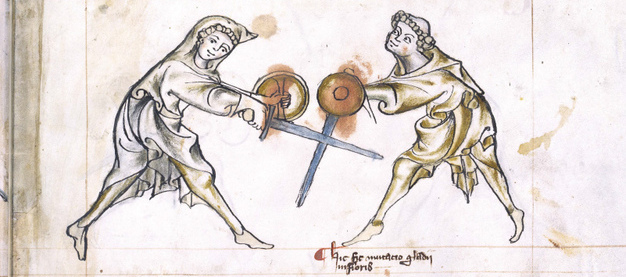 Hic fit mutacio gladii
inferioris